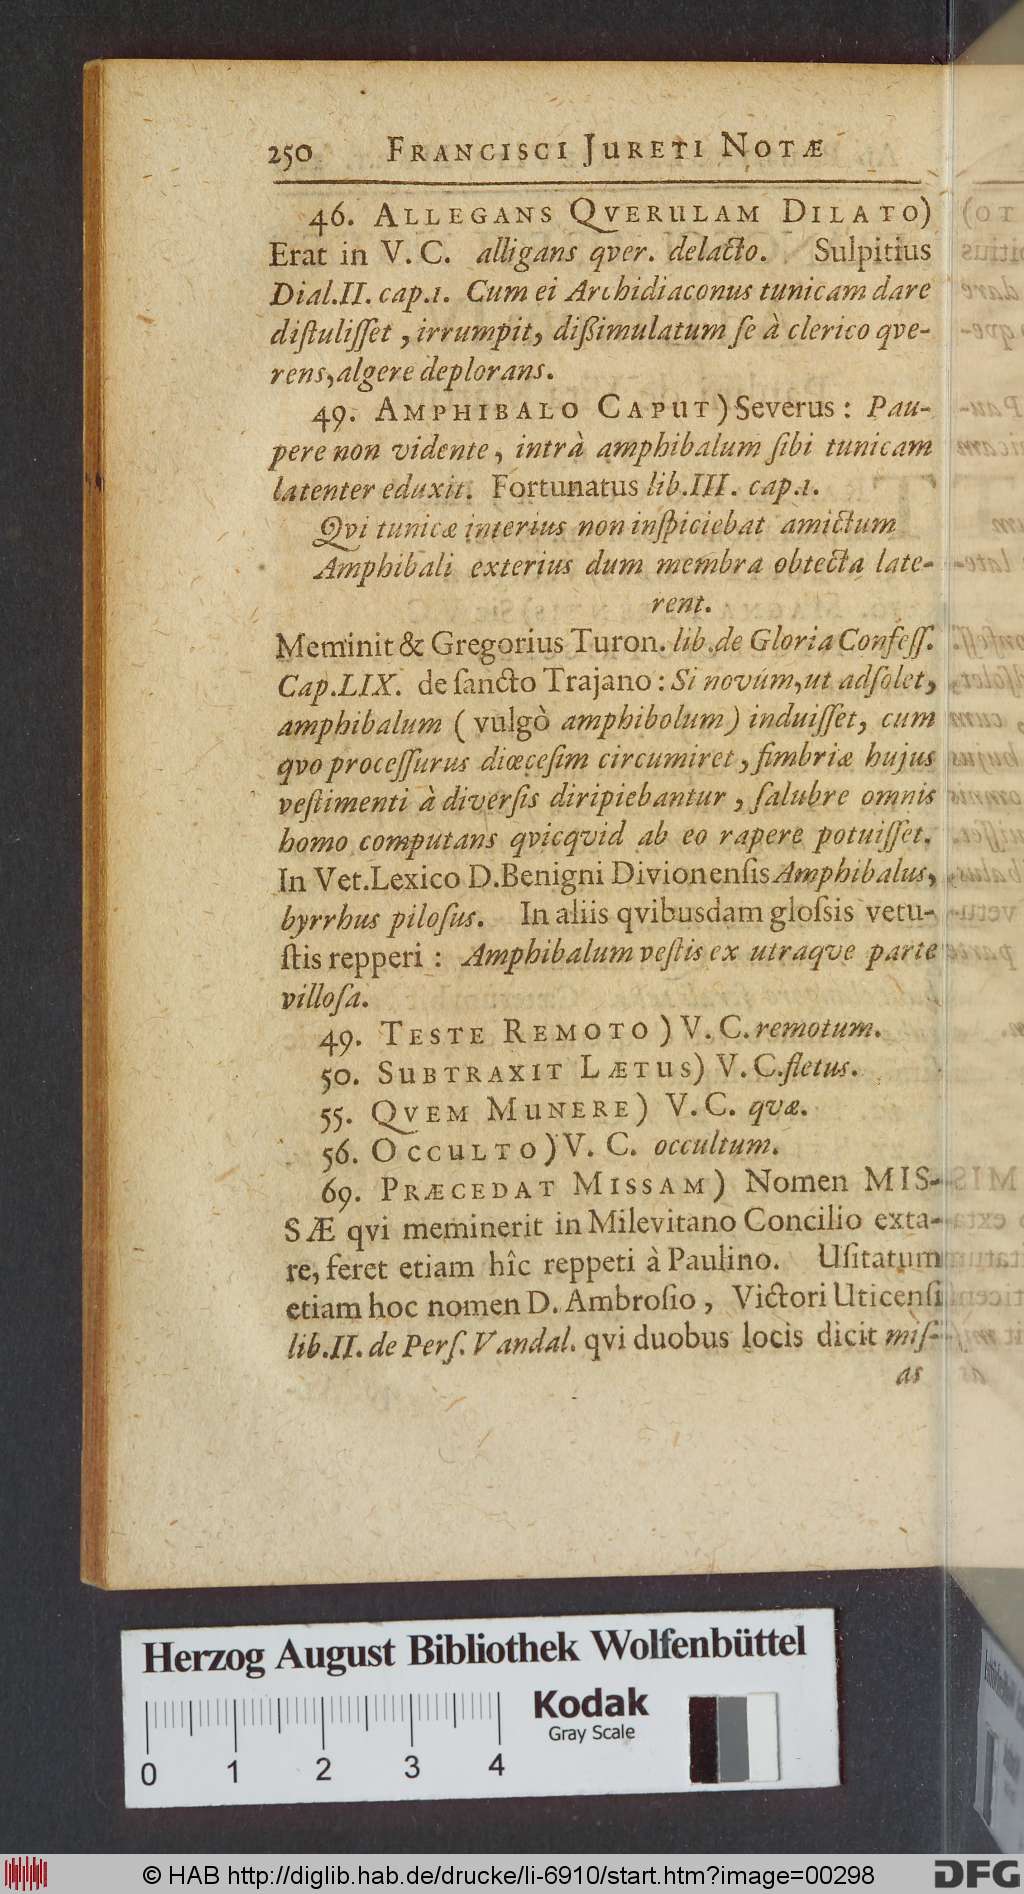 250 FRANCISCI JURETI NOTÆ
46. ALLEGANS QVERULAM DILATO)
Erat in V. C. alligans qver. delacto. Sulpitius
Dial. II. cap. 1. Cum ei Archidiaconus tunicam dare
distulisset, irrumpit, dißimulatum se à clerico qve-
rens, algere deplorans.
49. AMPHIBALO CAPUT) Severus: Pau-
pere non vidente, intrà amphibalum sibi tunicam
latenter eduxit. Fortunatus lib. III. cap. 1.
Qvi tunicæ interius non inspiciebat amictum
Amphibali exterius dum membra obtecta late-
rent.
Meminit & Gregorius Turon. lib. de Gloria Confess.
Cap. LIX. de sancto Trajano: Si novúm, ut adsolet,
amphibalum (vulgò amphibolum) induisset, cum
qvo processurus diœcesim circumiret, fimbriæ hujus
vestimenti à diversis diripiebantur, salubre omnis
homo computans qvicqvid ab eo rapere potuisset.
In Vet. Lexico D. Benigni Divionensis Amphibalus,
byrrhus pilosus. In aliis qvibusdam glossis vetu-
stis repperi: Amphibalum vestis ex utraqve parte
villosa.
49. TESTE REMOTO) V. C. remotum.
50. SUBTRAXIT LÆTUS) V. C. fletus.
55. QVEM MUNERE) V. C. qvæ.
56. OCCULTO) V. C. occultum.
69. PRÆCEDAT MISSAM) Nomen MIS-
SÆ qvi meminerit in Milevitano Concilio exta-
re, feret etiam hîc reppeti à Paulino. Usitatum
etiam hoc nomen D. Ambrosio, Victori Uticensi
lib. II. de Pers. Vandal. qvi duobus locis dicit mis-
as
Herzog August Bibliothek Wolfenbüttel
Kodak
Gray Scale
0 1 2 3 4
© HAB http://diglib.hab.de/drucke/li-6910/start.htm?image=00298
DFG